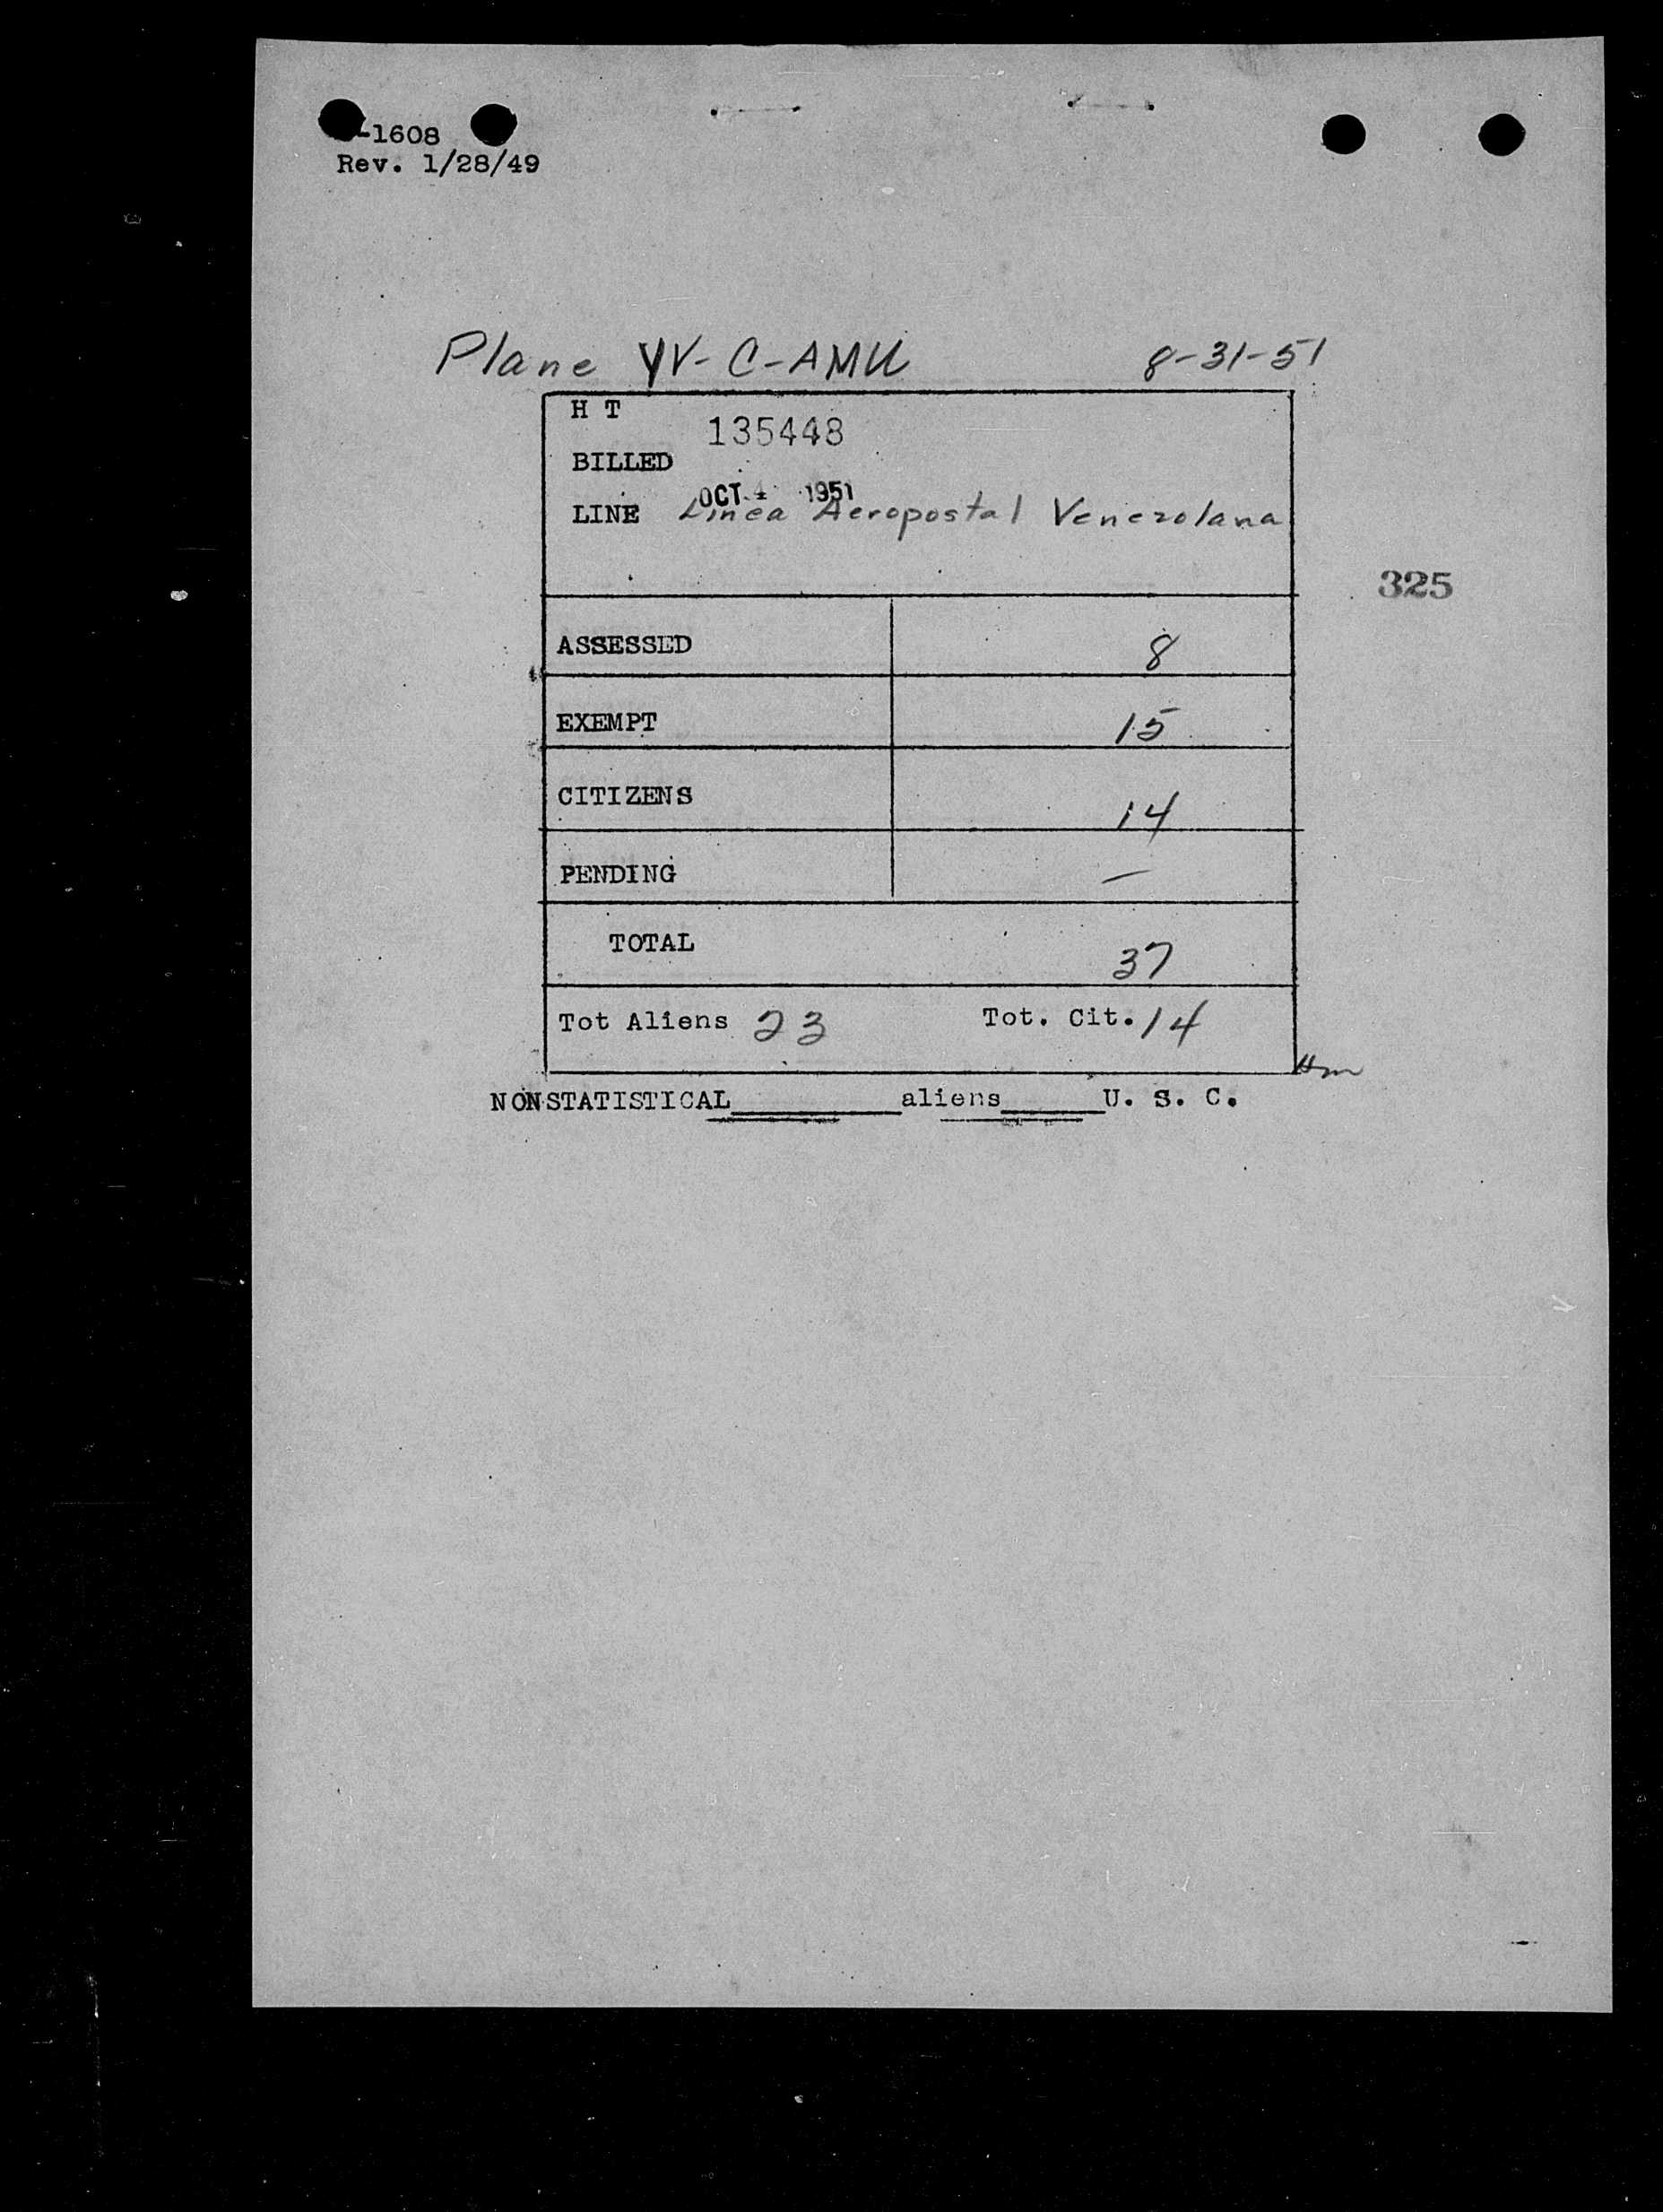 -1608
Rev. 1/28/49
Plane YV-C-AMU 8-31-51
H T
135448
BILLED
OCT 4 1951
LINE Linea Aeropostal Venezolana
325
ASSESSED 8
EXEMPT 15
CITIZENS 14
PENDING —
TOTAL 37
Tot Aliens 23 Tot. Cit. 14
NONSTATISTICAL__________aliens______U. S. C.